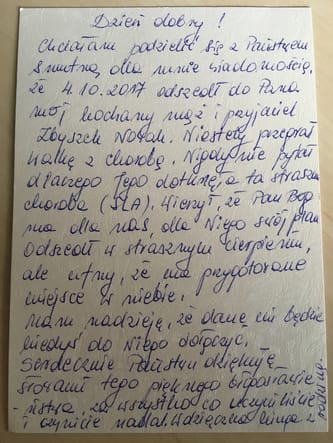 Dzień dobry!
Chciałam podzielić się z Państwem
smutną dla mnie wiadomością,
że 4.10.2017 odszedł do Pana
mój kochany mąż i przyjaciel
Zbyszek Nowak. Niestety przegrał
walkę z chorobą. Nigdy nie pytał
dlaczego Jego dotknęła ta straszna
choroba (SLA). Wierzył, że Pan Bóg
ma dla nas, dla Niego swój plan.
Odszedł w strasznym cierpieniu,
ale ufny, że ma przygotowane
miejsce w niebie.
Mam nadzieję, że dane mi będzie
kiedyś do Niego dołączyć.
Serdecznie Państwu dziękuję
słowami tego pięknego
za wszystko co uczyniliście
i czynicie nadal. Wdzięczna Kinga z
rodziną.